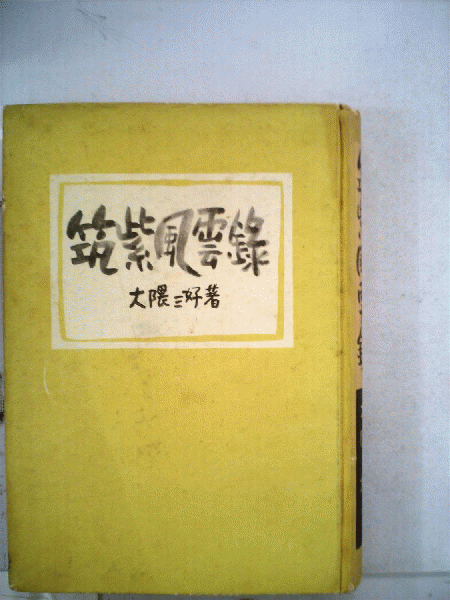 筑紫風雲錄
大隈三好著